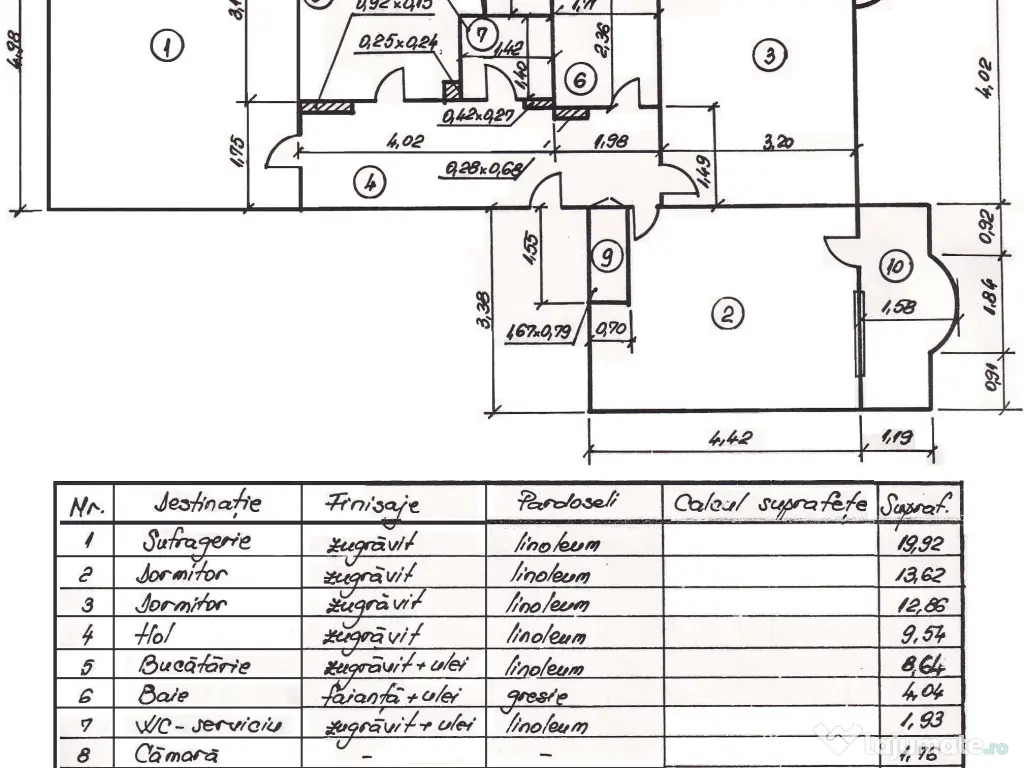 0,92x0,15
1,71
3,1
4,98
1
7
0,25x0,24
1,42
1,40
2,36
6
3
4,02
0,42x0,27
4,02
1,98
3,20
1,75
4
0,28x0,68
1,49
1,55
9
0,92
10
3,38
2
1,58
1,84
1,67x0,79
0,70
0,91
4,42
1,19
Nr. Destinație Finisaje Pardoseli Calcul suprafețe Supraf.
1 Sufragerie zugrăvit linoleum 19,92
2 Dormitor zugrăvit linoleum 13,62
3 Dormitor zugrăvit linoleum 12,86
4 Hol zugrăvit linoleum 9,54
5 Bucătărie zugrăvit + ulei linoleum 8,64
6 Baie faianță + ulei gresie 4,04
7 WC-serviciu zugrăvit + ulei linoleum 1,93
8 Cămară - - 1,16
lajumate.ro